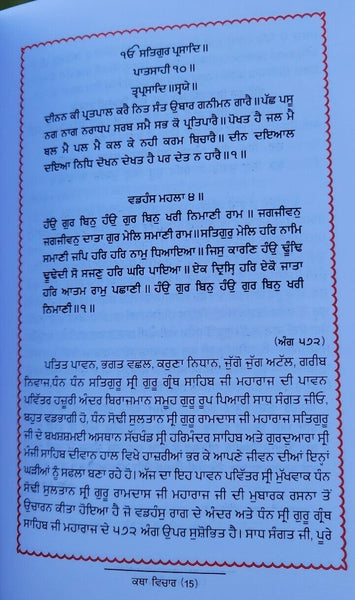 ੴ ਸਤਿਗੁਰ ਪ੍ਰਸਾਦਿ॥
ਪਾਤਸਾਹੀ ੧੦॥
ਤ੍ਵਪ੍ਰਸਾਦਿ॥ਸ੍ਵਯੇ॥
ਦੀਨਨ ਕੀ ਪ੍ਰਤਪਾਲ ਕਰੈ ਨਿਤ ਸੰਤ ਉਬਾਰ ਗਨੀਮਨ ਗਾਰੈ॥ਪੱਛ ਪਸੂ
ਨਗ ਨਾਗ ਨਰਾਧਪ ਸਰਬ ਸਮੈ ਸਭ ਕੋ ਪ੍ਰਤਿਪਾਰੈ॥ਪੋਖਤ ਹੈ ਜਲ ਮੈ
ਥਲ ਮੈ ਪਲ ਮੈ ਕਲ ਕੇ ਨਹੀ ਕਰਮ ਬਿਚਾਰੈ॥ ਦੀਨ ਦਇਆਲ
ਦਇਆ ਨਿਧਿ ਦੋਖਨ ਦੇਖਤ ਹੈ ਪਰ ਦੇਤ ਨ ਹਾਰੈ॥੧॥
ਵਡਹੰਸ ਮਹਲਾ ੪॥
ਹੰਉ ਗੁਰ ਬਿਨੁ ਹੰਉ ਗੁਰ ਬਿਨੁ ਖਰੀ ਨਿਮਾਣੀ ਰਾਮ॥ ਜਗਜੀਵਨੁ
ਜਗਜੀਵਨੁ ਦਾਤਾ ਗੁਰ ਮੇਲਿ ਸਮਾਣੀ ਰਾਮ॥ਸਤਿਗੁਰੁ ਮੇਲਿ ਹਰਿ ਨਾਮਿ
ਸਮਾਣੀ ਜਪਿ ਹਰਿ ਹਰਿ ਨਾਮੁ ਧਿਆਇਆ॥ਜਿਸੁ ਕਾਰਣਿ ਹੰਉ ਢੂੰਢਿ
ਢੂਢੇਦੀ ਸੋ ਸਜਣੁ ਹਰਿ ਘਰਿ ਪਾਇਆ॥ ਏਕ ਦ੍ਰਿਸ੍ਟਿ ਹਰਿ ਏਕੋ ਜਾਤਾ
ਹਰਿ ਆਤਮ ਰਾਮੁ ਪਛਾਣੀ॥ ਹੰਉ ਗੁਰ ਬਿਨੁ ਹੰਉ ਗੁਰ ਬਿਨੁ ਖਰੀ
ਨਿਮਾਣੀ॥੧॥
(ਅੰਗ ੫੭੨)
ਪਤਿਤ ਪਾਵਨ, ਭਗਤ ਵਛਲ, ਕਰੁਣਾ ਨਿਧਾਨ, ਜੁੱਗੋ ਜੁੱਗ ਅਟੱਲ, ਗਰੀਬ
ਨਿਵਾਜ,ਧੰਨ ਧੰਨ ਸਤਿਗੁਰੂ ਸ੍ਰੀ ਗੁਰੂ ਗ੍ਰੰਥ ਸਾਹਿਬ ਜੀ ਮਹਾਰਾਜ ਦੀ ਪਾਵਨ
ਪਵਿੱਤਰ ਹਜ਼ੂਰੀ ਅੰਦਰ ਬਿਰਾਜਮਾਨ ਸਮੂਹ ਗੁਰੂ ਰੂਪ ਪਿਆਰੀ ਸਾਧ ਸੰਗਤ ਜੀਓ,
ਬਹੁਤ ਵਡਭਾਗੀ ਹੋ, ਧੰਨ ਸੋਢੀ ਸੁਲਤਾਨ ਸ੍ਰੀ ਗੁਰੂ ਰਾਮਦਾਸ ਜੀ ਮਹਾਰਾਜ ਸਤਿਗੁਰੂ
ਜੀ ਦੇ ਬਖਸ਼ਸ਼ਮਈ ਅਸਥਾਨ ਸੱਚਖੰਡ ਸ੍ਰੀ ਹਰਿਮੰਦਰ ਸਾਹਿਬ ਅਤੇ ਗੁਰਦੁਆਰਾ ਸ੍ਰੀ
ਮੰਜੀ ਸਾਹਿਬ ਦੀਵਾਨ ਹਾਲ ਵਿਖੇ ਹਾਜ਼ਰੀਆਂ ਭਰ ਕੇ ਆਪਣੇ ਜੀਵਨ ਦੀਆਂ ਇਨ੍ਹਾਂ
ਘੜੀਆਂ ਨੂੰ ਸਫਲਾ ਬਣਾ ਰਹੇ ਹੋ। ਅੱਜ ਦਾ ਇਹ ਪਾਵਨ ਪਵਿੱਤਰ ਸ੍ਰੀ ਮੁੱਖਵਾਕ ਧੰਨ
ਸੋਢੀ ਸੁਲਤਾਨ ਸ੍ਰੀ ਗੁਰੂ ਰਾਮਦਾਸ ਜੀ ਮਹਾਰਾਜ ਜੀ ਦੀ ਮੁਬਾਰਕ ਰਸਨਾ ਤੋਂ
ਉਚਾਰਨ ਕੀਤਾ ਹੋਇਆ ਹੈ ਜੋ ਵਡਹੰਸੁ ਰਾਗ ਦੇ ਅੰਦਰ ਅਤੇ ਧੰਨ ਸ੍ਰੀ ਗੁਰੂ ਗ੍ਰੰਥ
ਸਾਹਿਬ ਜੀ ਮਹਾਰਾਜ ਦੇ ੫੭੨ ਅੰਗ ਉਪਰ ਸੁਸ਼ੋਭਿਤ ਹੈ। ਸਾਧ ਸੰਗਤ ਜੀ, ਪੂਰੇ
ਕਥਾ ਵਿਚਾਰ (15)